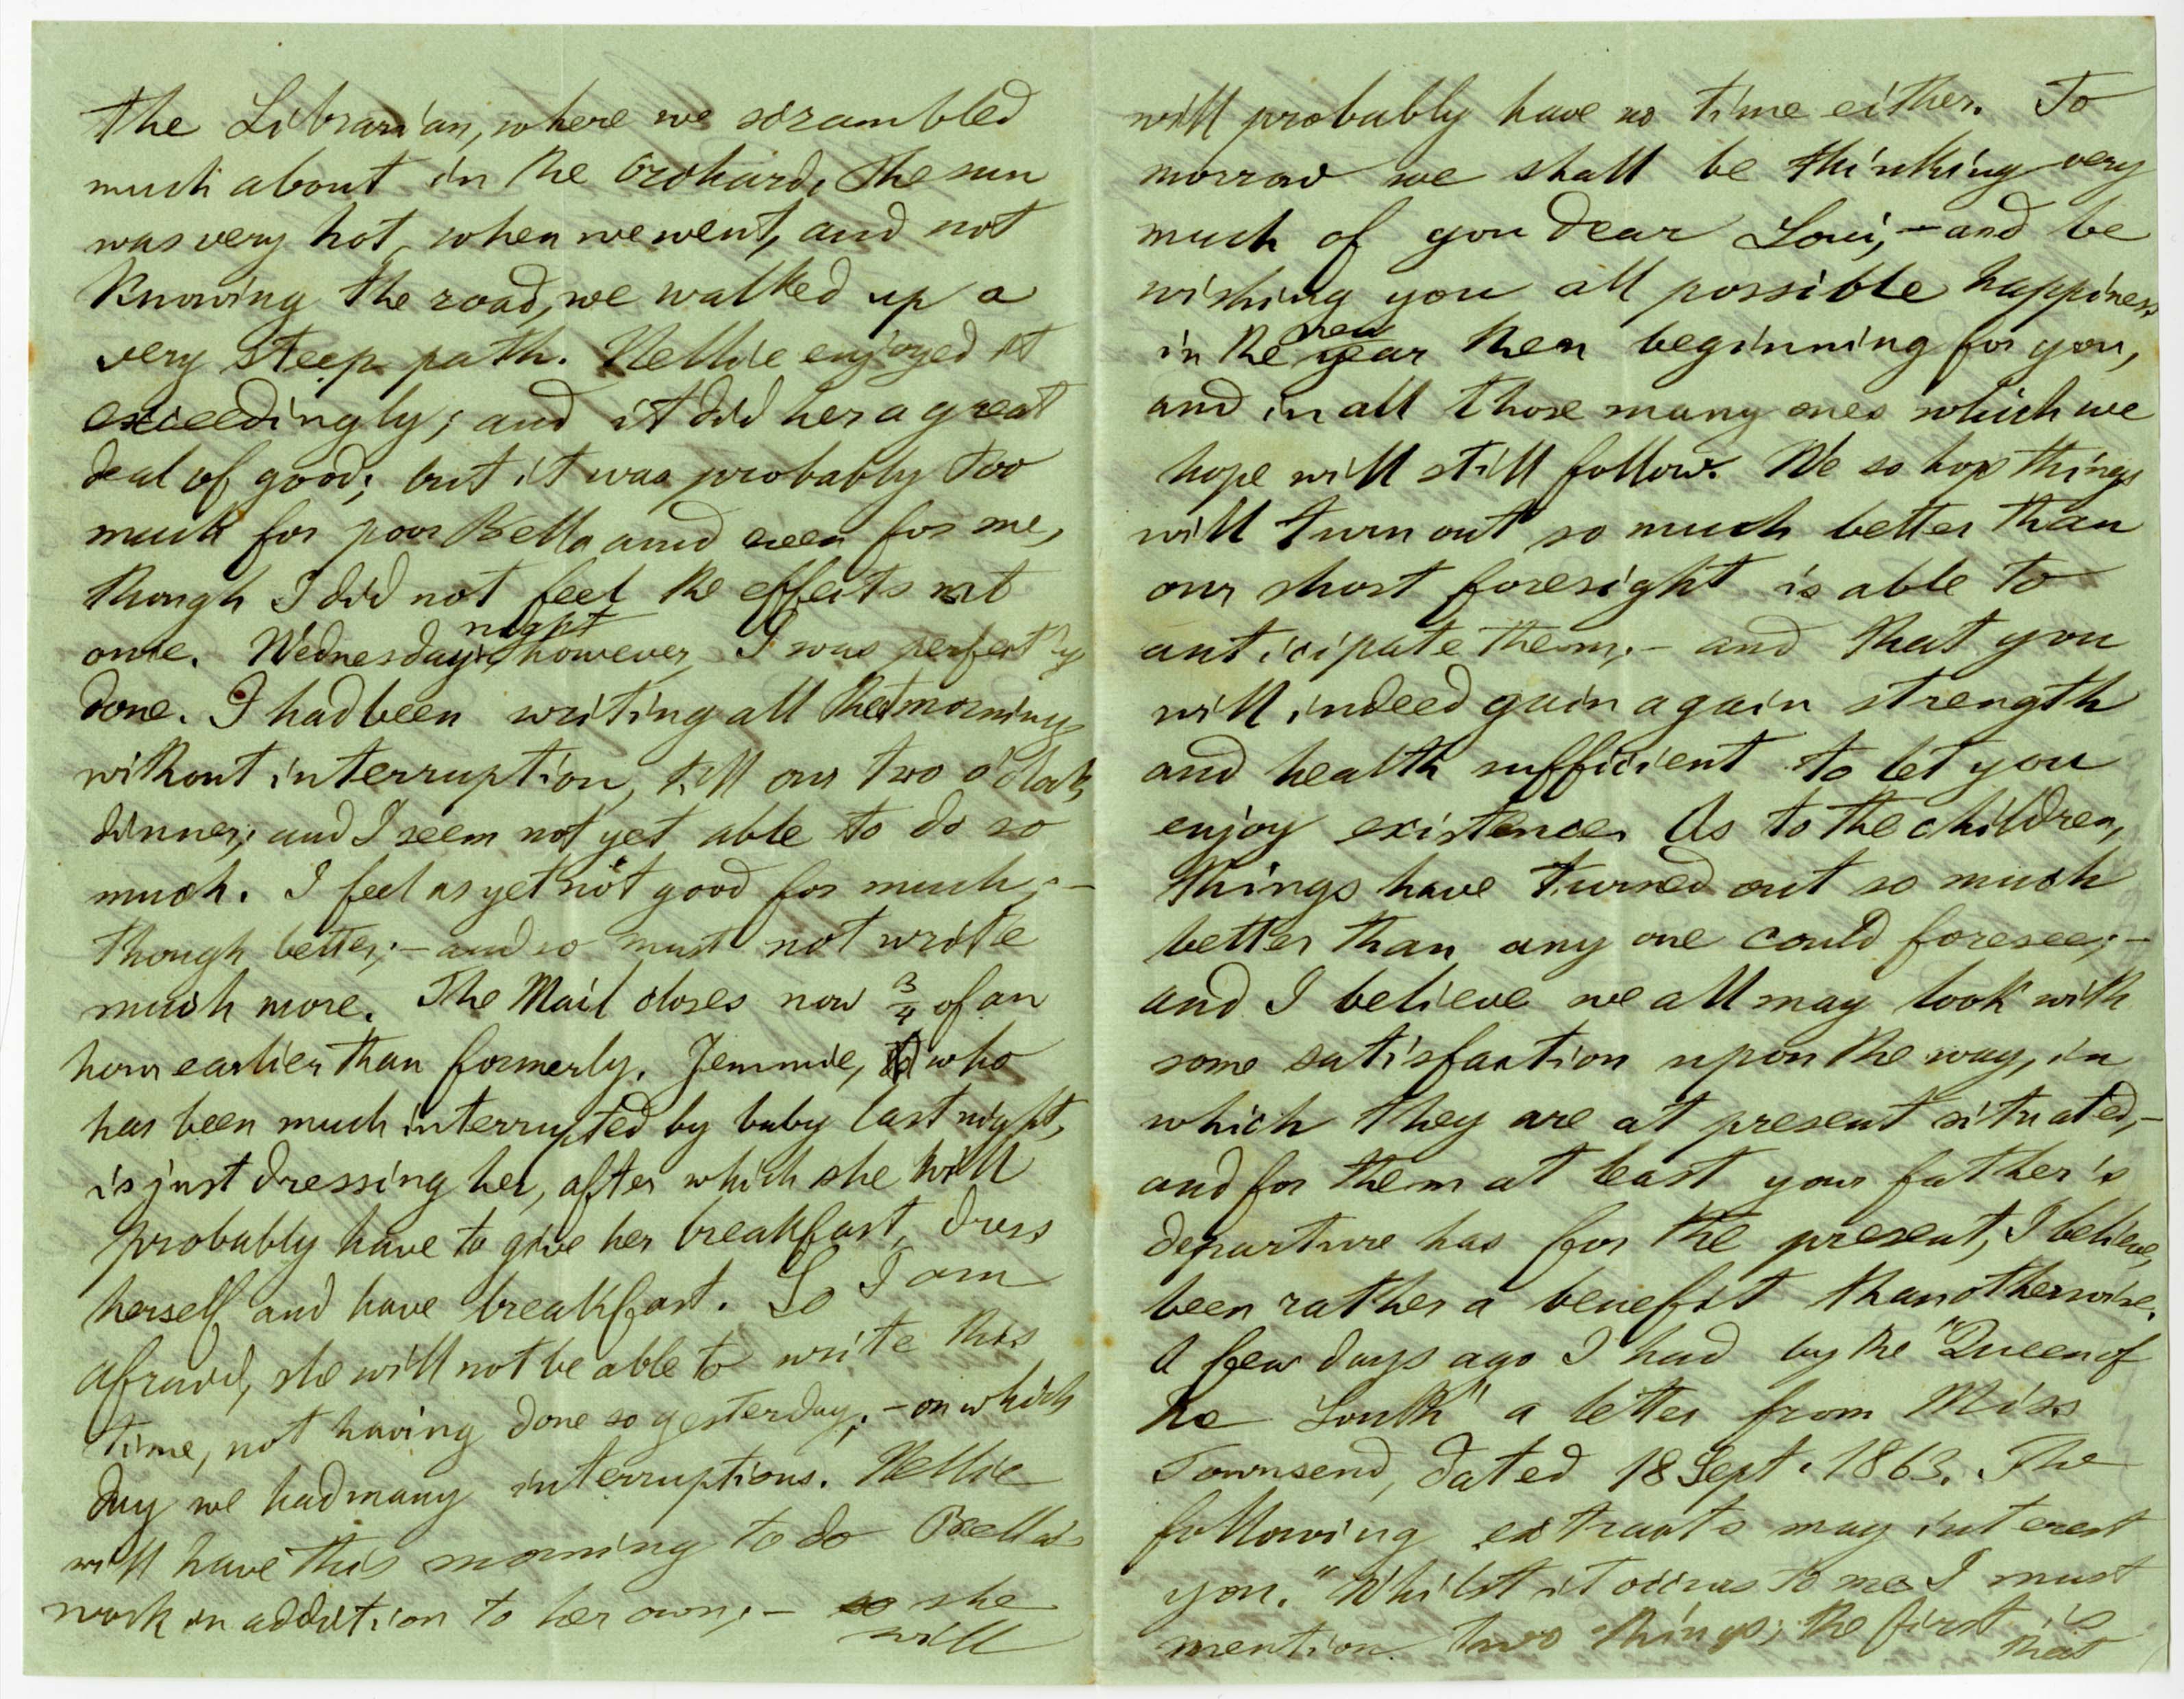 the Librarian, where we scrambled
much about in the Orchard. The sun
was very hot, when we went, and not
knowing the road, we walked up a
very steep path. Nellie enjoyed it
exceedingly; and it did her a great
deal of good; but it was probably too
much for poor Bella and even for me,
though I did not feel the effects at
once. Wednesday night however, I was perfectly
done. I had been writing all that morning
without interruption, till our two o'clock
dinner; and I seem not yet able to do so
much. I feel as yet not good for much;-
though better;- and so must not write
much more. The Mail closes now 3/4 of an
hour earlier than formerly. Jemmie, who
has been much interrupted by baby last night,
is just dressing her, after which she will
probably have to give her breakfast, dress
herself and have breakfast. So I am
afraid, she will not be able to write this
time, not having done so yesterday;- on which
day we had many interruptions. Nellie
will have this morning to do Bella's
work in addition to her own;- so she
will
will probably have no time either. To
morrow we shall be thinking very
much of you dear Loui,- and be
wishing you all possible happiness
in the new year then beginning for you,
and in all those many ones which we
hope will still follow. We so hope things
will turn out so much better than
our short foresight is able to
anticipate them;- and that you
will indeed gain again strength
and health sufficient to let you
enjoy existence. As to the children,
things have turned out so much
better than any one could foresee;-
and I believe we all may look with
some satisfaction upon the way, in
which they are at present situated,-
and for them at least your father's
departure has for the present, I believe,
been rather a benefit than otherwise.
A few days ago I had by the "Queen of
the South" a letter from Miss
Townsend, dated 18 Sept. 1863. The
following extracts may interest
you. "Whilst it occurs to me I must
mention two things; the first is
that